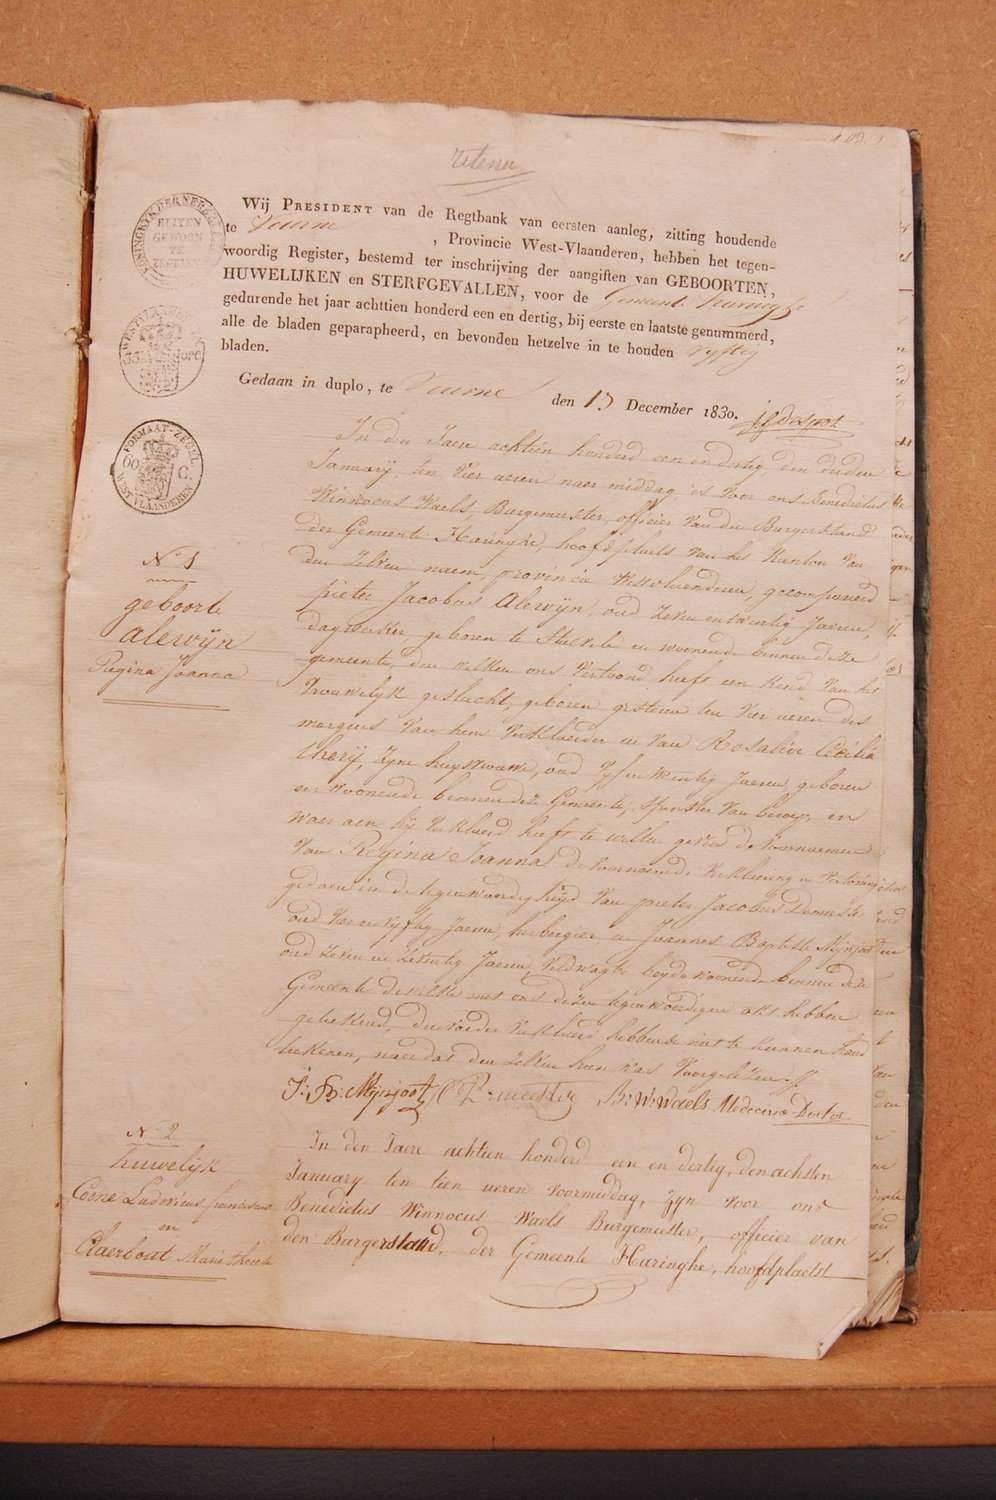 KONINGRYK DER NEDERLANDEN
BUITEN
GEWOON
TE
Wij PRESIDENT van de Regtbank van eersten aanleg, zitting houdende
te Veurne , Provincie West-Vlaanderen, hebben het tegen-
woordig Register, bestemd ter inschrijving der aangiften van GEBOORTEN,
HUWELIJKEN en STERFGEVALLEN, voor de Gemeente Haringhe
gedurende het jaar achttien honderd een en dertig, bij eerste en laatste genummerd,
alle de bladen geparapheerd, en bevonden hetzelve in te honden vyftig
bladen.
Gedaan in duplo, te Veurne den 13 December 1830.
FORMAAT-ZEGEL
60 C.
WEST-VLAANDEREN
In den Jaere achtien honderd een en dertig, den derden
January, ten vier ueren naer middag, is voor ons Benedictus
Winnocus Waels, Burgemeester, officier van den Burgerstand
der Gemeente Haringhe, hoofdplaets van het Kanton van
den zelven naem, provincie Westvlaenderen, gecompareerd
pieter Jacobus Alewijn, oud zeven en twintig Jaeren,
dagwerker, geboren te Stavele en woonende binnen deze
gemeente, den welken ons vertoond heeft een kind van het
vrouwelyk geslacht, geboren gisteren ten vier ueren des
morgens van hem verklaerder en van Rosalie Cecilia
therij, zyne huysvrouwe, oud vyf en twintig Jaeren, geboren
en woonende binnen deze Gemeente, spinster van beroep, en
waer aen hij verklaerd heeft te willen geven de voornaemen
van Regina Joanna. de voornoemde verklaering en vertooning
gedaen in de tegenwoordigheyd van pieter Jacobus Demeester
oud vier en vyftig Jaeren, herbergier en Joannes Baptiste Mynjoot
oud zeven en zeventig Jaeren, veldwagter beyde woonende binnen deze
Gemeente dewelke met ons dezen tegenwoordigen akt hebben
geteekend, den vader verklaerd hebbende niet te kunnen hand
teekenen, naer dat den zelven hun was voorgelezen
J: B: Mijnjoot P: J: Demeester B: W: Waels Medecine Doctor
No 1
geboorte
alewijn
Regina Joanna
No 2
huwelijk
Coene Ludovicus franciscus
en
Claerbout Marie therese
In den Jaere achtien honderd een en dertig, den achsten
January ten tien ueren voormiddag, zyn voor ons
Benedictus Winnocus Waels Burgemeester, officier van
den Burgerstand, der Gemeente Haringhe, hoofdplaetst